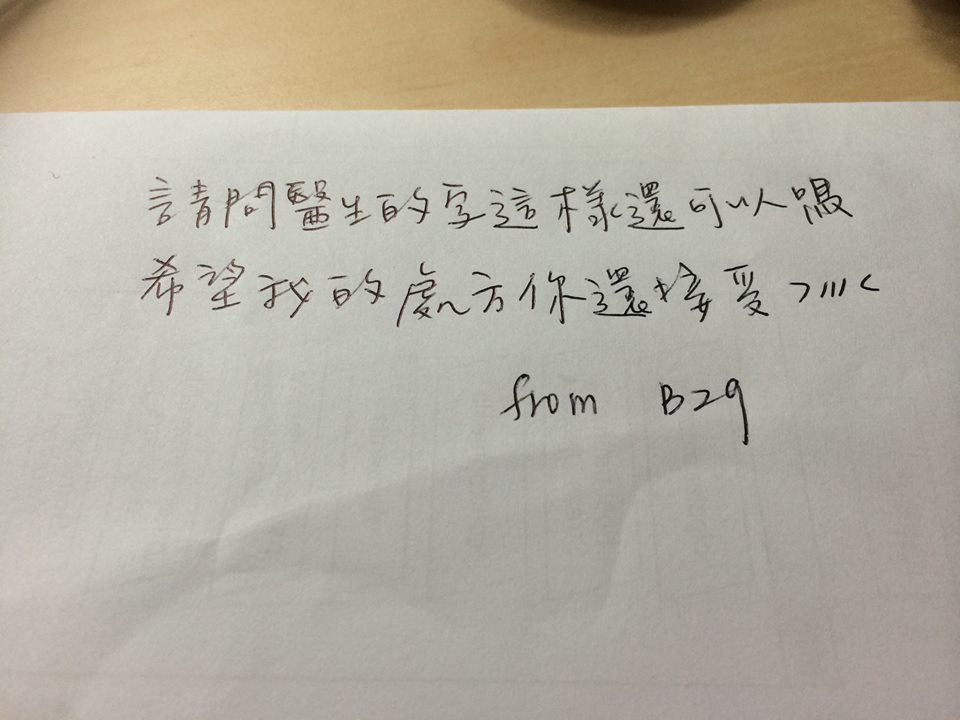 請問醫生的字這樣還可以嗎
希望我的處方你還接受 >///<
from B29